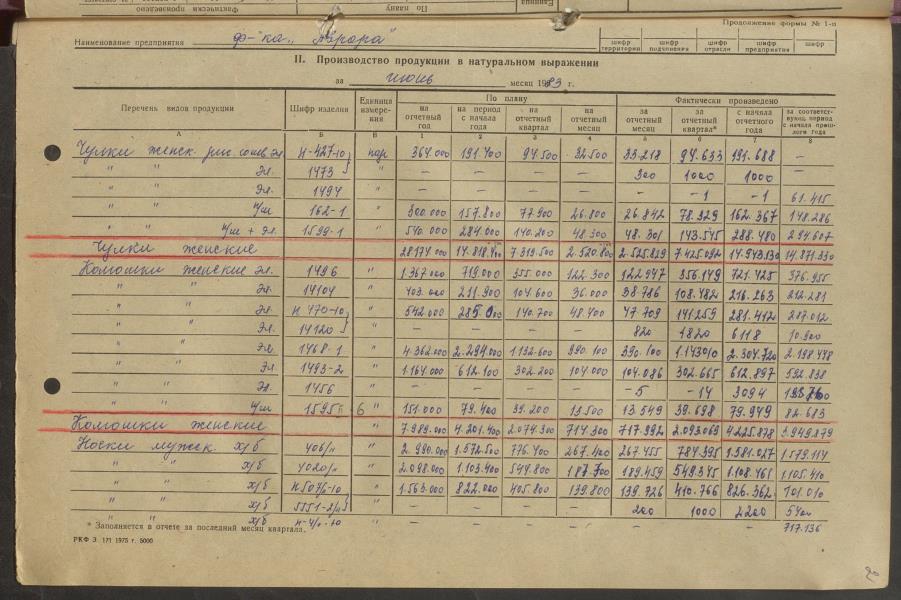 Продолжение формы № 1-п
Наименование предприятия ф-ка „Аврора"
шифр территории шифр подчинения шифр отрасли шифр предприятия шифр
II. Производство продукции в натуральном выражении
за июнь месяц 1983 г.
Перечень видов продукции Шифр изделия Единица измерения По плану Фактически произведено
на отчетный год на период с начала года на отчетный квартал на отчетный месяц за отчетный месяц за отчетный квартал* с начала отчетного года за соответствующ. период с начала прошлого года
А Б В 1 2 3 4 5 6 7 8
Чулки женск. эл. н-427-10 пар 364.000 191.400 94.500 32.500 33.218 94.633 191.688 –
" " эл. 1473 " – – – – 300 1000 1000 –
" " эл. 1494 – – – – – –1 –1 61.415
" " п/ш 162-1 " 300.000 157.800 77.900 26.800 26.842 78.329 162.367 148.286
" " п/ш + эл. 1599-1 " 540.000 284.000 140.200 48.300 48.301 143.545 288.480 294.607
Чулки женские 28174.000 14.818.400 7.319.500 2.520.800 2.525.829 7.425.092 14.943.530 14.871.330
Колготки женские эл. 1496 " 1.367.000 719.000 355.000 122.300 122.947 356.149 721.425 376.955
" " эл. 14104 " 403.000 211.900 104.600 36.000 38.786 108.482 216.263 212.281
" " эл. н 470-10 " 542.000 285.000 140.700 48.400 47.709 141.259 281.412 287.012
" " эл. 14120 " – – – – 820 1820 6118 10.900
" " эл. 1468-1 " 4.362.000 2.294.000 1.132.600 390.100 390.100 2.304.720 2.198.448
" " эл. 1493-2 " 1.164.000 612.100 302.200 104.000 104.086 302.665 612.897 592.838
" " эл. 1456 " – – – – –5 –14 3094
" " п/ш 1595 6 " 151.000 79.400 39.200 13.500 13.549 39.698 79.949 82.683
Колготки женские " 7.989.000 4.201.400 2.074.300 714.300 717.992 2.093.069 4.225.878 3.949.879
Носки мужск. х/б 406/н " 2.990.000 1.572.500 776.400 267.400 267.455 784.395 1.581.027 1.579.114
" " х/б 4020/н " 2.098.000 1.103.400 544.800 187.700 189.459 549.345 1.108.461 1.105.410
" " х/б " 1.563.000 822.000 405.800 139.800 139.726 410.766 826.362 701.010
" " х/б " – – – – 200 1000 2200
" " х/б " – – – – – – – 717.136
* Заполняется в отчете за последний месяц квартала.
РКФ З. 171 1975 г. 5000